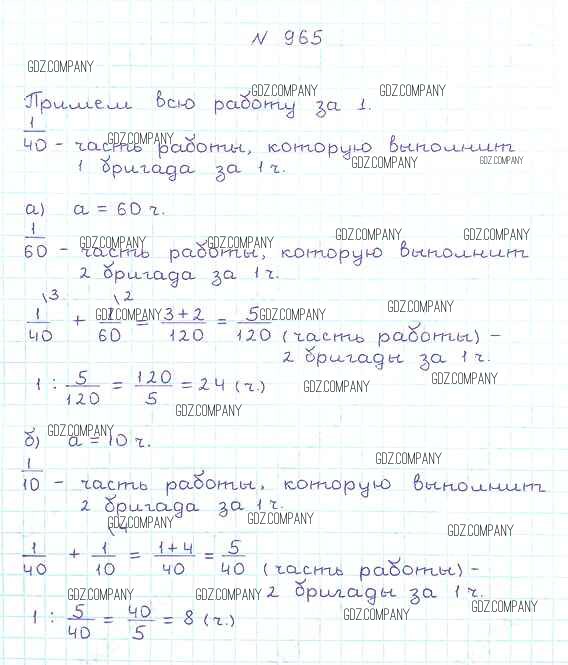 N 965
GDZ.COMPANY
GDZ.COMPANY GDZ.COMPANY
Примем всю работу за 1.
1/40 - часть работы, которую выполнит
GDZ.COMPANY
1 бригада за 1 ч.
GDZ.COMPANY GDZ.COMPANY
а) a = 60 ч.
1/60 - часть работы, которую выполнит
GDZ.COMPANY GDZ.COMPANY GDZ.COMPANY GDZ.COMPANY
2 бригада за 1 ч.
1/40 \3 + 1/60 \2 = 3+2/120 = 5/120 (часть работы) -
GDZ.COMPANY GDZ.COMPANY GDZ.COMPANY
2 бригады за 1 ч.
1 : 5/120 = 120/5 = 24 (ч.)
GDZ.COMPANY GDZ.COMPANY
GDZ.COMPANY
GDZ.COMPANY
б) a = 10 ч.
GDZ.COMPANY
1/10 - часть работы, которую выполнит
2 бригада за 1 ч.
GDZ.COMPANY GDZ.COMPANY
GDZ.COMPANY
1/40 + 1/10 \4 = 1+4/40 = 5/40 (часть работы) -
2 бригады за 1 ч.
GDZ.COMPANY GDZ.COMPANY
1 : 5/40 = 40/5 = 8 (ч.)
GDZ.COMPANY GDZ.COMPANY